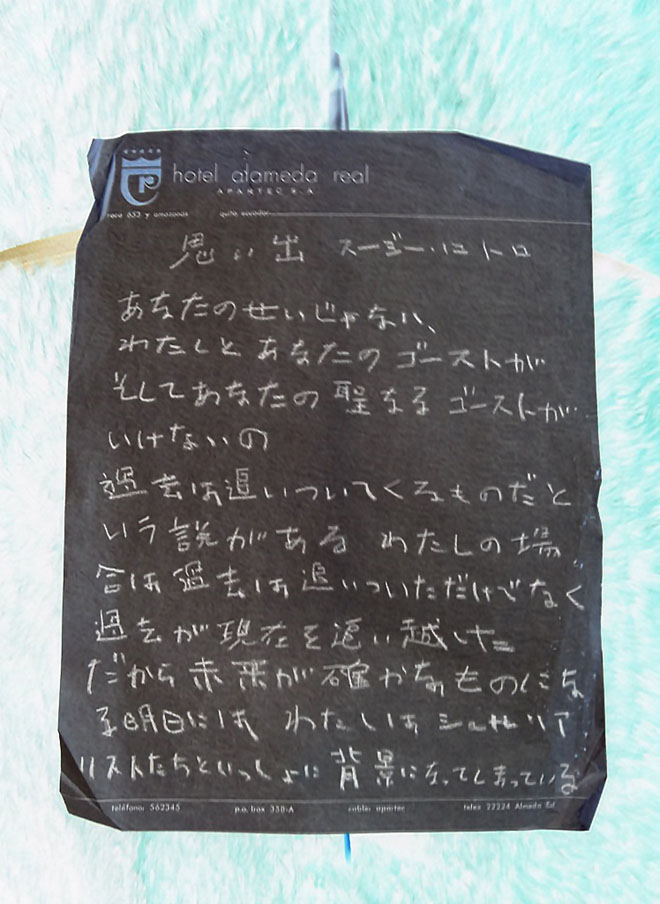 hotel alameda real
APARTEC S.A
roca 653 y amazonas quito ecuador
思い出 スージー・にトロ
あなたのせいじゃない、
わたしとあなたのゴーストが
そしてあなたの聖なるゴーストが
いけないの
過去は追いついてくるものだと
いう説がある わたしの場
合は過去は追いついただけでなく
過去が現在を追い越した
だから未来が確かなものにな
る明日には わたしはシュルリア
リストたちといっしょに背景になってしまっている
teléfono: 562345 p.o. box 358-A cable: apartec telex 22224 Almeda Ed.